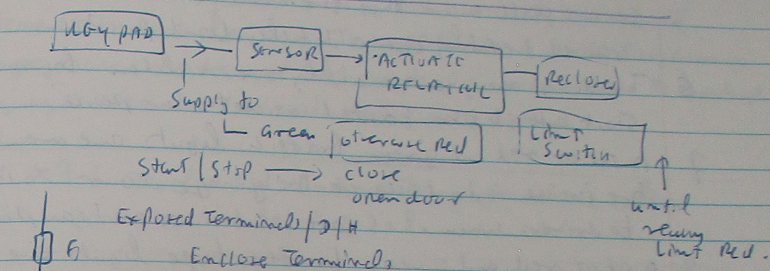 KEY PAD
SENSOR
ACTIVATE
Recloser
Supply to
Green
otherwise Red
Limit
Switch
Start / Stop
close
open door
until
Limit Red.
Exposed Terminals / D / H
Enclose Terminals